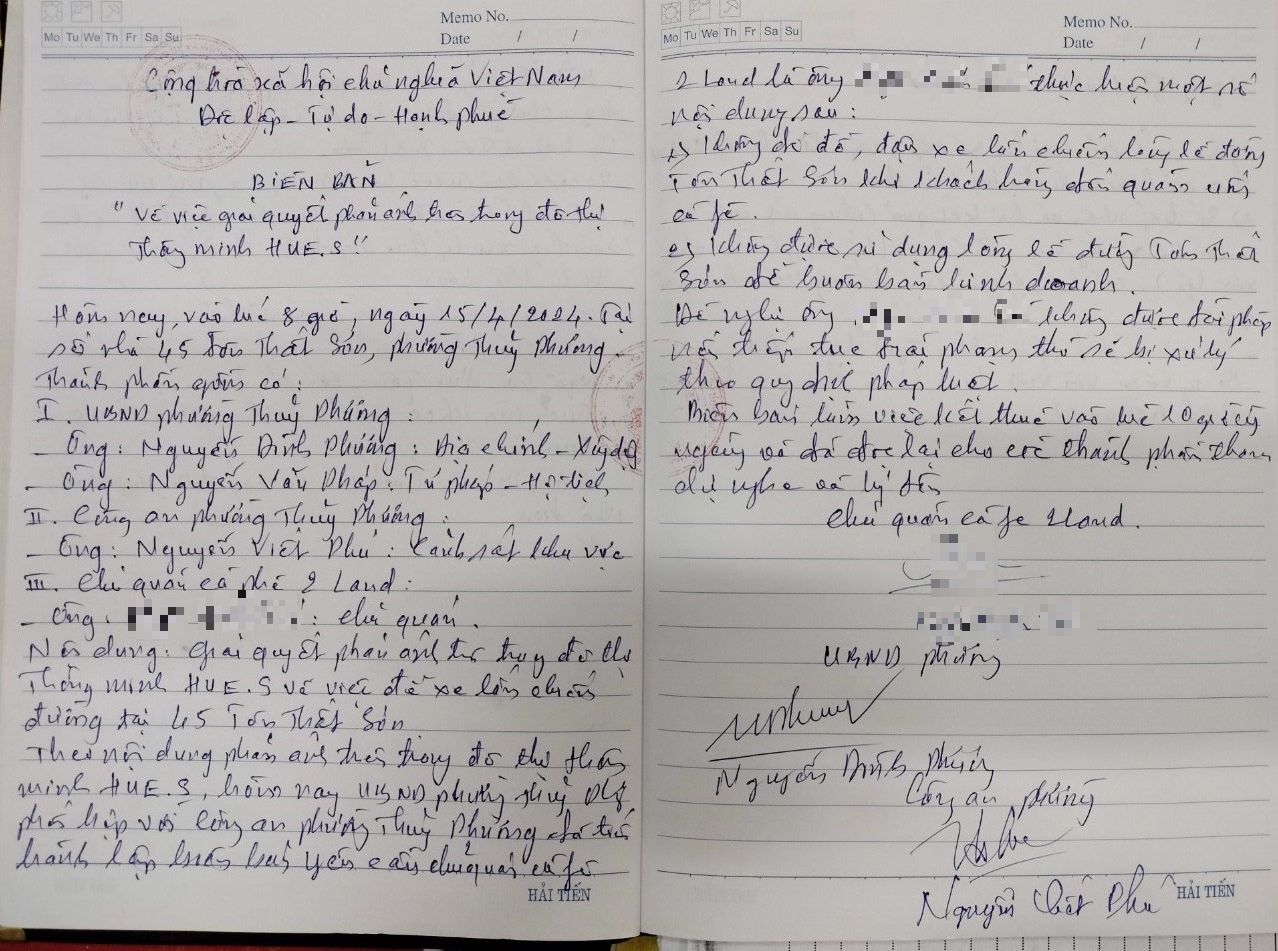 Memo No.
Mo Tu We Th Fr Sa Su
Date / /
Cộng hoà xã hội chủ nghĩa Việt Nam
Độc lập - Tự do - Hạnh phúc
BIÊN BẢN
"Về việc giải quyết phản ánh trên trang đô thị
Thông minh HUE.S"
Hôm nay, vào lúc 8 giờ, ngày 15/4/2024. Tại
số nhà 45 Tôn Thất Sơn, phường Thuỷ Phương.
Thành phần gồm có:
I. UBND phường Thuỷ Phương:
- Ông: Nguyễn Đình Phương: Địa chính - Xây dựng
- Ông: Nguyễn Văn Pháp: Tư pháp - Hộ tịch
II. Công an phường Thuỷ Phương:
- Ông: Nguyễn Viết Phú: Cảnh sát khu vực
III. Chủ quán cà phê 2 Land:
- Ông: : chủ quán.
Nội dung: Giải quyết phản ánh từ trang đô thị
Thông minh HUE.S về việc để xe lấn chiếm
đường tại 45 Tôn Thất Sơn
Theo nội dung phản ánh trên trang đô thị thông
minh HUE.S, hôm nay UBND phường Thuỷ
phối hợp với Công an phường Thuỷ Phương đã tiến
hành lập biên bản yêu cầu chủ quán cà fê
HẢI TIẾN
Memo No.
Mo Tu We Th Fr Sa Su
Date / /
2 Land là ông thực hiện một số
nội dung sau:
1, Không để đỗ, đậu xe lấn chiếm lòng lề đường
Tôn Thất Sơn khi khách hàng đến quán uống
cà fê.
2, Không được sử dụng lòng lề đường Tôn Thất
Sơn để buôn bán kinh doanh.
Đề nghị ông không được tái phạm
nếu tiếp tục trái phạm thì sẽ bị xử lý
theo quy định pháp luật.
Biên bản làm việc kết thúc vào lúc 10 giờ cùng
ngày và đã đọc lại cho các thành phần tham
dự nghe và ký tên
Chủ quán cà fe 2 Land.
UBND phường
Nguyễn Đình Phương
Công an phường
Nguyễn Viết Phú
HẢI TIẾN